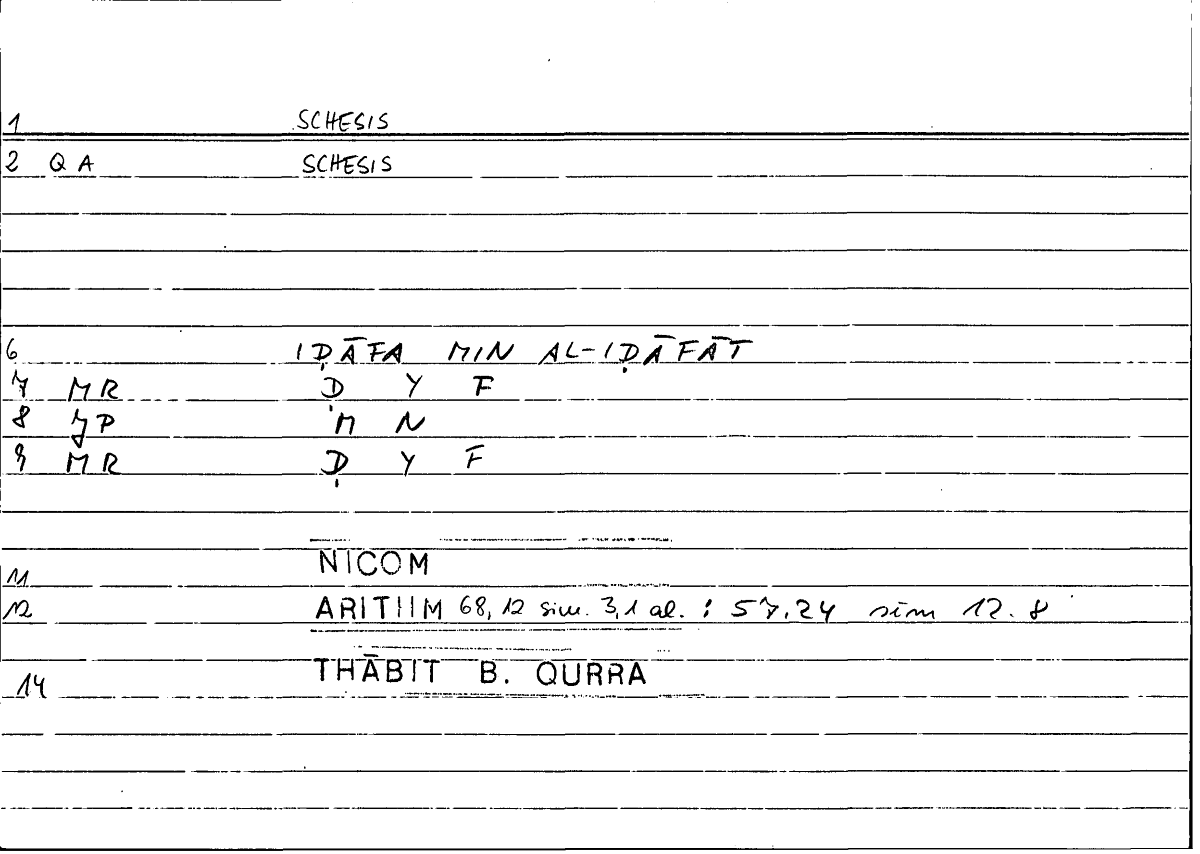 1 SCHESIS
2 QA SCHESIS
6 IḌĀFA MIN AL-IḌĀFĀT
7 MR Ḍ Y F
8 JP M N
9 MR Ḍ Y F
NICOM
11
12 ARITHM 68,12 sim. 3,1 al. : 57.24 sim 12.8
THĀBIT B. QURRA
14